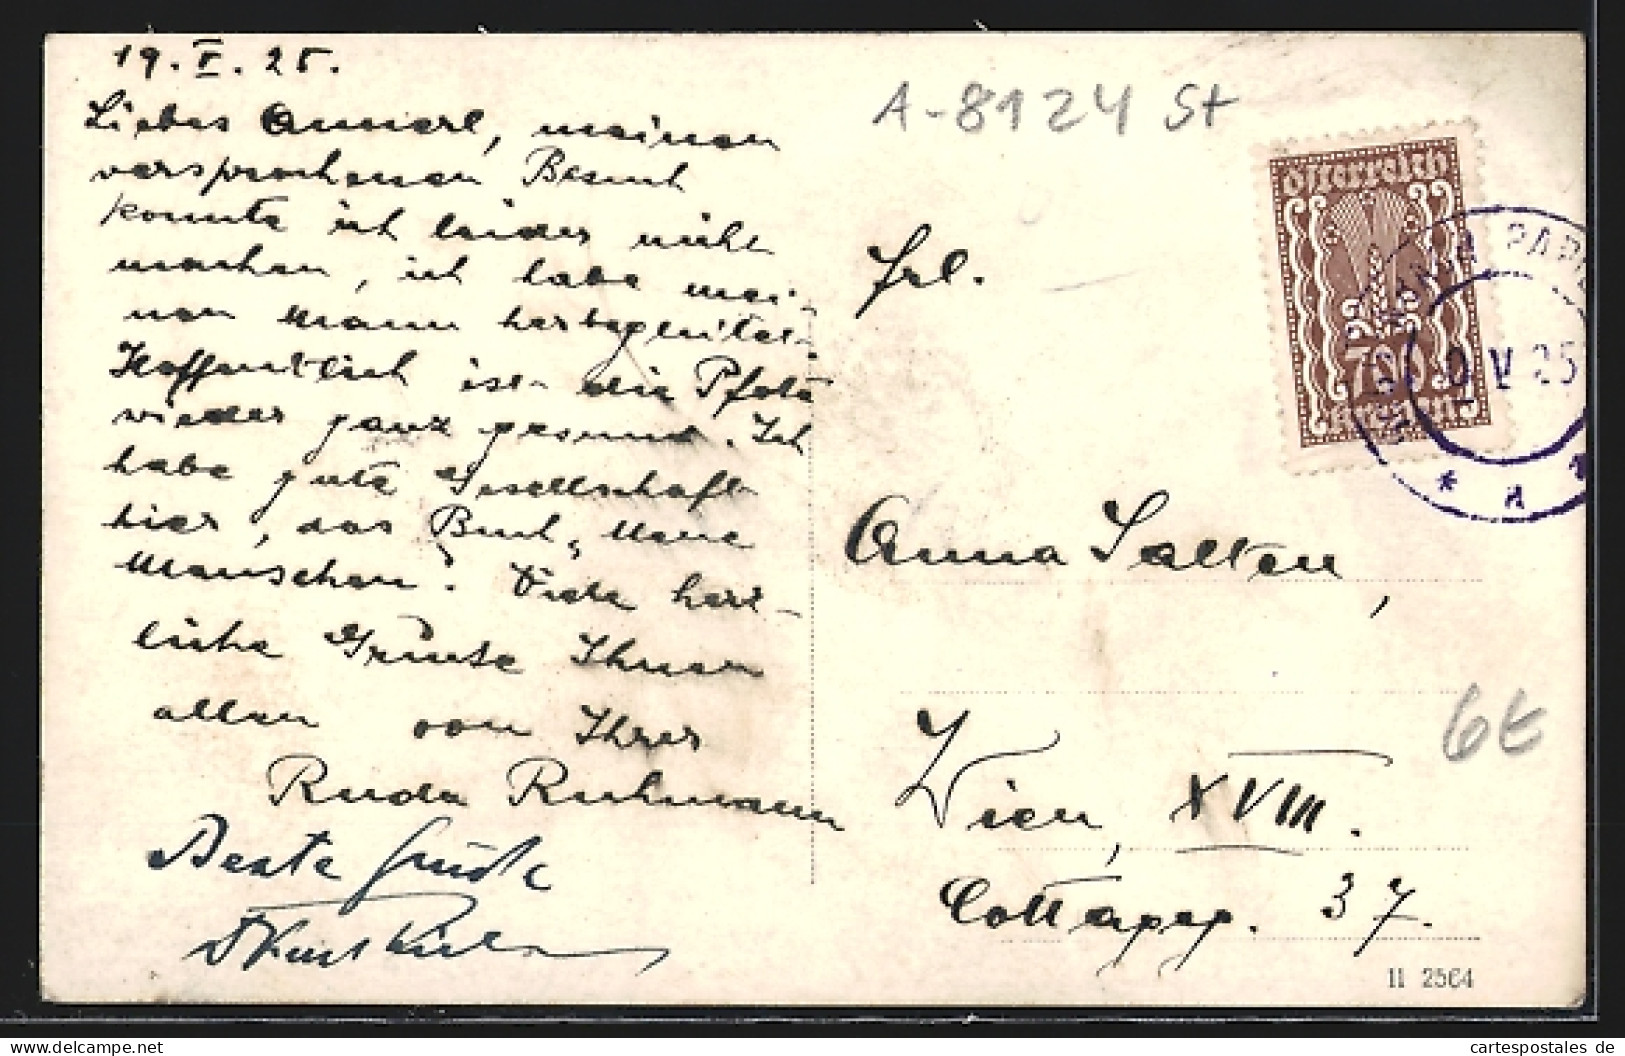 19. V. 25.
Liebes Annerl, meinen
versprochenen Besuch
konnte ich leider nicht
machen, ich habe mei-
nen Mann herbegleitet.
Hoffentlich ist die Pfote
wieder ganz gesund. Ich
habe gute Gesellschaft
hier, das Buch „Neue
Menschen". Viele herz-
liche Grüsse Ihnen
allen von Ihrer
Ruda Ruhmann
Beste Grüße
A-8124 St
Österreich
700
Kronen
V 25
Frl.
Anna Salten,
Wien, XVIII.
Cottageg. 37.
6t
II 2564
cartespostales de